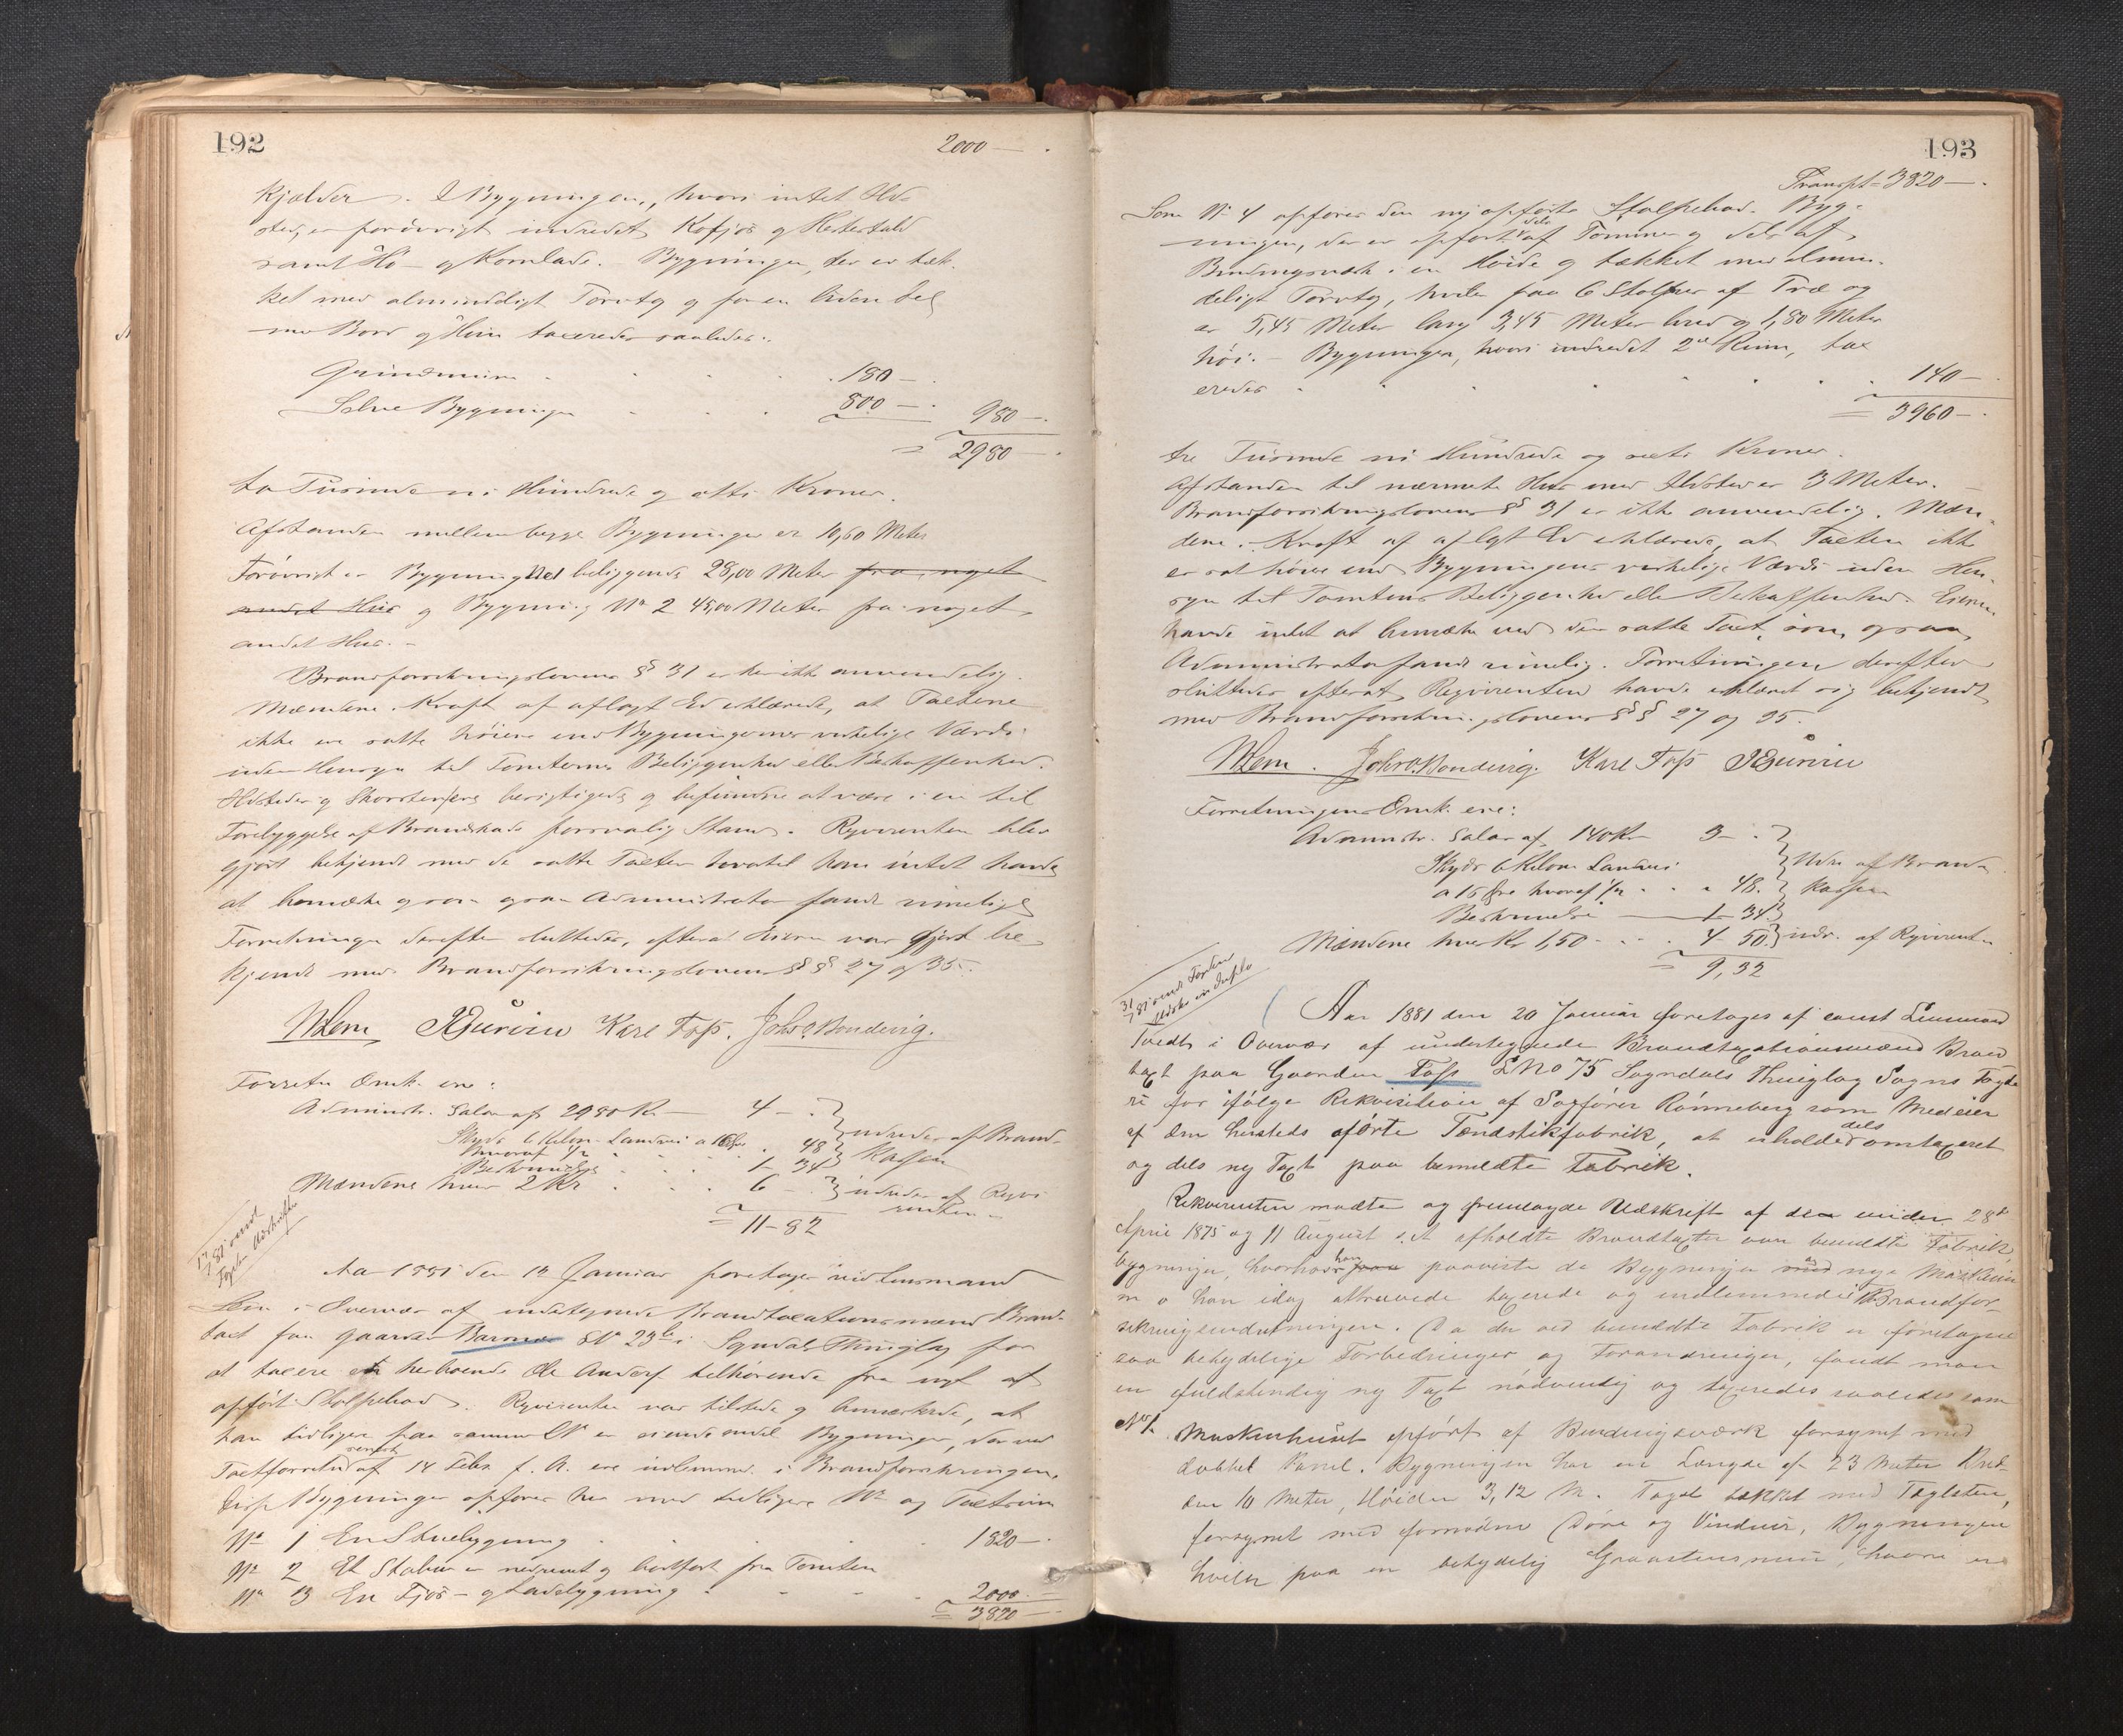 192
2000 —
Kjælder. I Bygningen, hvori intet Ild-
sted, er forövrigt indredet Kofjös og Hestestald
samt Hö- og Kornlade. Bygningen, der er tæk-
ket med almindeligt Torvtag og for en liden Del
med Bord og Hun taxeredes saaledes:
Grundmuren 180 —
Selve Bygningen 800 — 980 —
= 2980 —
to Tusinde ni Hundrede og otti Kroner.
Afstanden mellem begge Bygninger er 10,60 Meter
Forövrigt er Bygning No 1 beliggende 28,00 Meter fra noget
andet Hus og Bygning No 2 45,00 Meter fra noget
andet Hus. -
Brandforsikringslovens § 31 er her ikke anvendelig.
Mændene i Kraft af aflagt Ed erklærede, at Taxterne
ikke ere satte höiere end Bygningernes virkelige Værdi
uden Hensyn til Tomternes Beliggenhed eller Beskaffenhed.
Ildsteder og Skorstene besigtigedes og befandtes at være i en til
Forebyggelse af Brandskade forsvarlig Stand. Reqvirenten blev
gjort bekjendt med de satte Taxter hvortil han intet havde
at bemærke og som ogsaa Administrator fandt rimelige
Forretningen derefter sluttedes, efterat Eieren var gjort be-
kjendt med Brandforsikringslovens §§ 27 og 35.
Lem Karl Foss. Joh. O. Bondevig.
Forretn. Omk. ere:
Administr. Salar af 2980 Kr — 4 —
Skyds 6 Kilom. Landvei a 16 Öre
hvoraf 1/2 48
Beskrivelse 1 — 34
udredes af Brand-
Kassen
Mændene hver 2 Kr 6 — udredes af Reqvi-
renten
= 11 — 82
Aar 1881 den 12 Januar foretoges ved Lensmand
Lem i Overvær af undertegnede Brandtaxationsmænd Brand-
taxt paa Gaarden Barsnes LNo 23 i Sogndals Thinglag for
at taxere en herboende Ole Anders tilhörende fra nyt af
opfört Stolpebod. Reqvirenten var tilstede og bemærkede, at
han tidligere paa samme LNo er eiende endel Bygninger, der ved
Taxtforretning af 14 Febr. f. A. ere indlemmet i Brandforsikringen.
Disse Bygninger opföres her med tidligere No og Taxtsum
No 1 En Stuebygning 1820 —
No 2 Et Stabur er nedrevet og bortfört fra Tomten
No 3 En Fjös- og Ladebygning 2000 —
= 3820 —
193
Transpt = 3820 —
Som No 4 opföres den ny opförte Stolpebod. Byg-
ningen, der er opfört dels af Tömmer og dels af
Bindingsværk i en Höide og tækket med almin-
deligt Torvtag, hviler paa 6 Stolper af Træ og
er 5,45 Meter lang 3,45 Meter bred og 1,80 Meter
höi. - Bygningen, hvori indredet 2de Rum, tax-
eredes 140 —
= 3960 —
tre Tusinde ni Hundrede og sexti Kroner.
Afstanden til nærmeste Hus med Ildsted er 3 Meter.
Brandforsikringslovens § 31 er ikke anvendelig. Mæn-
dene i Kraft af aflagt Ed erklærede, at Taxten ikke
er sat höiere end Bygningens virkelige Værdi uden Hen-
syn til Tomtens Beliggenhed eller Beskaffenhed. Eieren
havde intet at bemærke ved den satte Taxt, som ogsaa
Administrator fandt rimelig. Forretningen derefter
sluttedes efterat Reqvirenten havde erklæret sig bekjendt
med Brandforsikringslovens §§ 27 og 35.
Lem. Joh. O. Bondevig. Karl Foss
Forretningens Omk. ere:
Administr. Salar af 140 Kr 3 —
Skyds 6 Kilom. Landvei
a 16 Öre hvoraf 1/2 „ 48.
Beskrivelse — 1 — 34
Udr. af Brand-
kassen
Mændene hver Kr 1,50 4 50 udr. af Reqvirenten
= 9,32
Aar 1881 den 20 Januar foretoges af const Lensmand
Tvedt i Overvær af undertegnede Brandtaxationsmænd Brand-
taxt paa Gaarden Foss LNo 75 Sogndals Thinglag Sogns Fogde-
ri for ifölge Rekvisition af Sagförer Rönneberg som Medeier
af den hersteds opförte Tændstikfabrik, at erholde dels omtaxeret
og dels ny Taxt paa bemeldte Fabrik.
Rekvirenten mødte og fremlagde Udskrift af den under 28de
April 1875 og 11 August s. A. afholdte Brandtaxter over bemeldte Fabrik-
bygninger, hvorhos han paaviste de Bygninger og nye Maskin-
er han idag attraaede taxerede og indlemmede i Brandfor-
sikringsindretningen. Da der ved bemeldte Fabrik er foretagne
saa betydelige Forbedringer og Forandringer, fandt man
en fuldstændig ny Taxt nödvendig og taxeredes saaledes som
No 1. Maskinhuset opfört af Bindingsværk forsynet med
dobbel Panel. Bygningen har en Længde af 23 Meter Bred-
den 10 Meter, Höiden 3,12 M. Taget tækket med Taglsten,
forsynet med fornødne Döre og Vinduer, Bygningen
hviler paa en betydelig Graastensmuur, hvori er